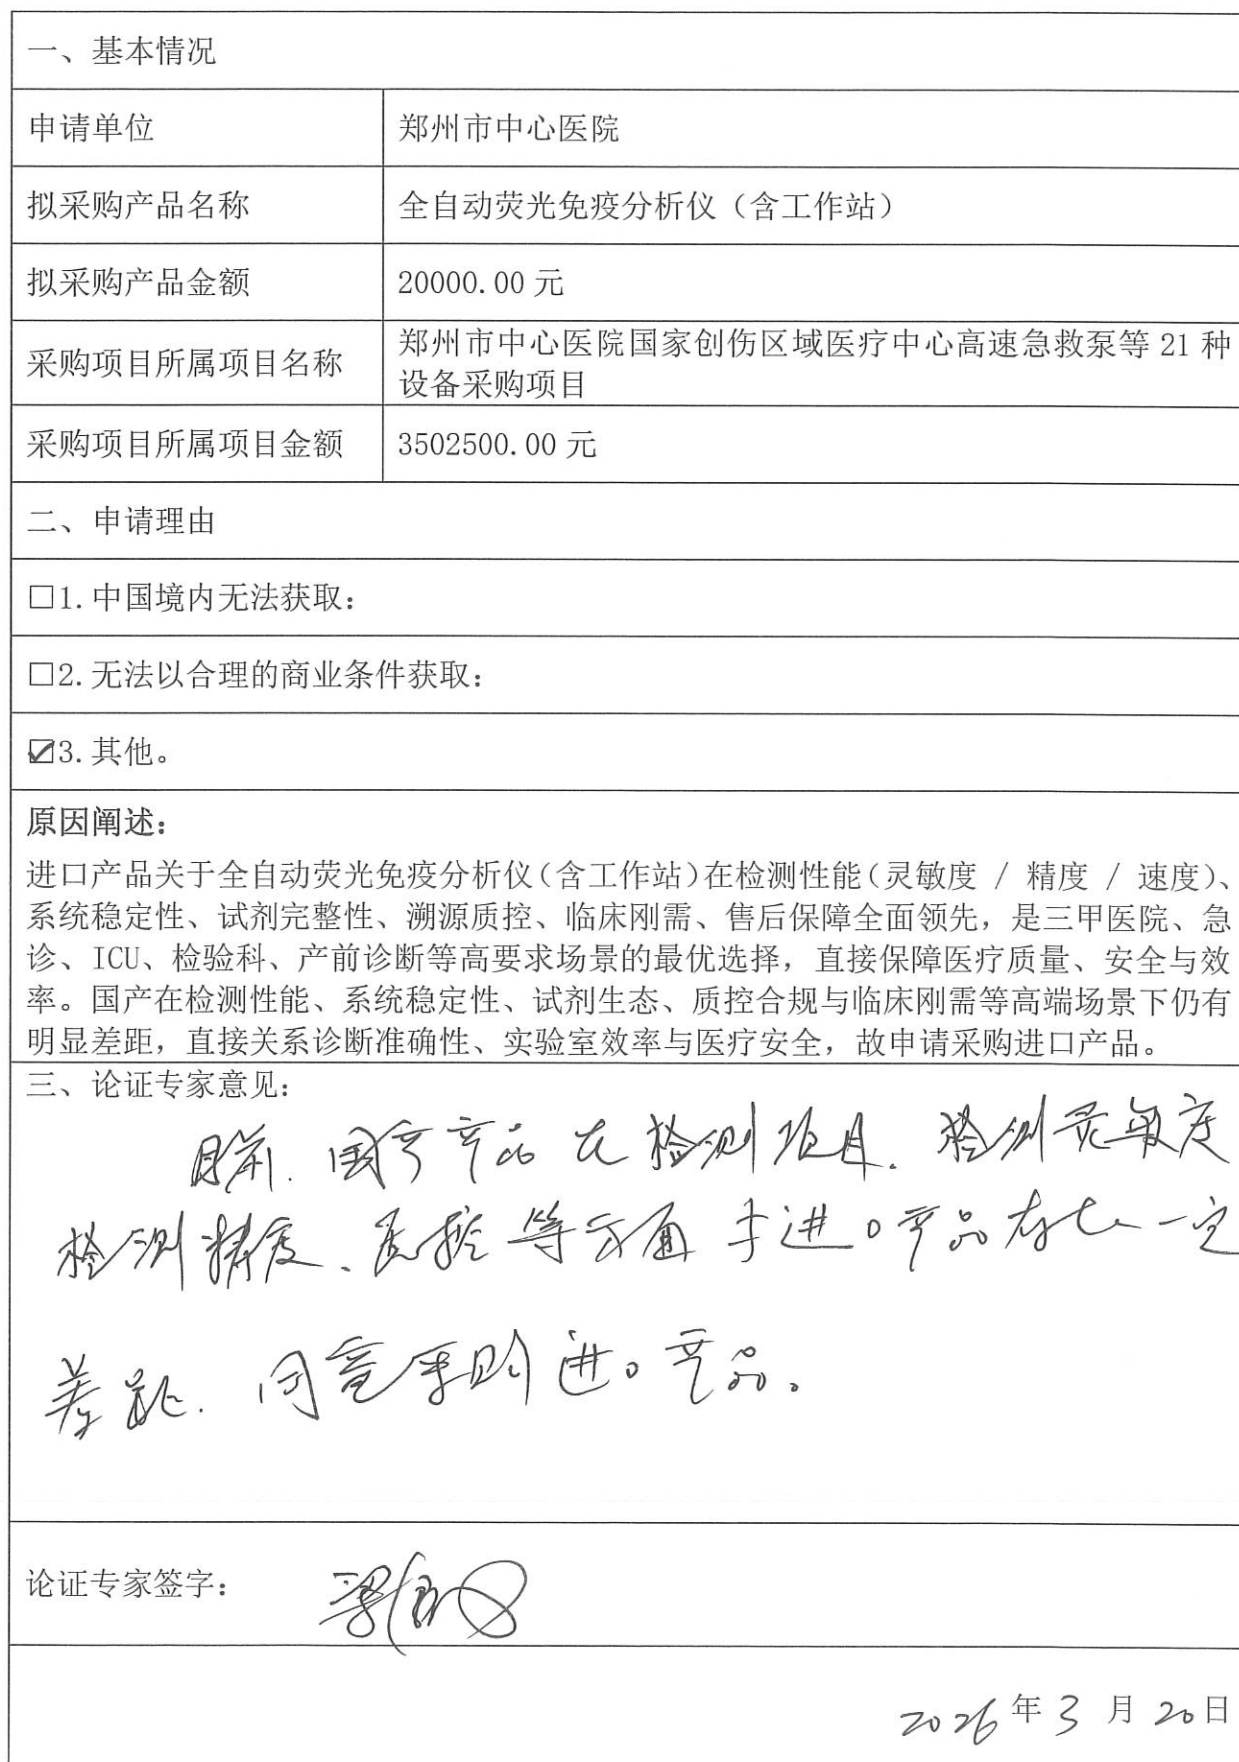 一、基本情况
申请单位 郑州市中心医院
拟采购产品名称 全自动荧光免疫分析仪（含工作站）
拟采购产品金额 20000.00 元
采购项目所属项目名称 郑州市中心医院国家创伤区域医疗中心高速急救泵等 21 种
设备采购项目
采购项目所属项目金额 3502500.00 元
二、申请理由
□1.中国境内无法获取：
□2.无法以合理的商业条件获取：
☑3.其他。
原因阐述：
进口产品关于全自动荧光免疫分析仪(含工作站)在检测性能(灵敏度 / 精度 / 速度)、
系统稳定性、试剂完整性、溯源质控、临床刚需、售后保障全面领先，是三甲医院、急
诊、ICU、检验科、产前诊断等高要求场景的最优选择，直接保障医疗质量、安全与效
率。国产在检测性能、系统稳定性、试剂生态、质控合规与临床刚需等高端场景下仍有
明显差距，直接关系诊断准确性、实验室效率与医疗安全，故申请采购进口产品。
三、论证专家意见：
目前.国产产品在检测项目.检测灵敏度
检测精度、质控等方面与进口产品存在一定
差距.同意采购进口产品。
论证专家签字：
2026年3月20日